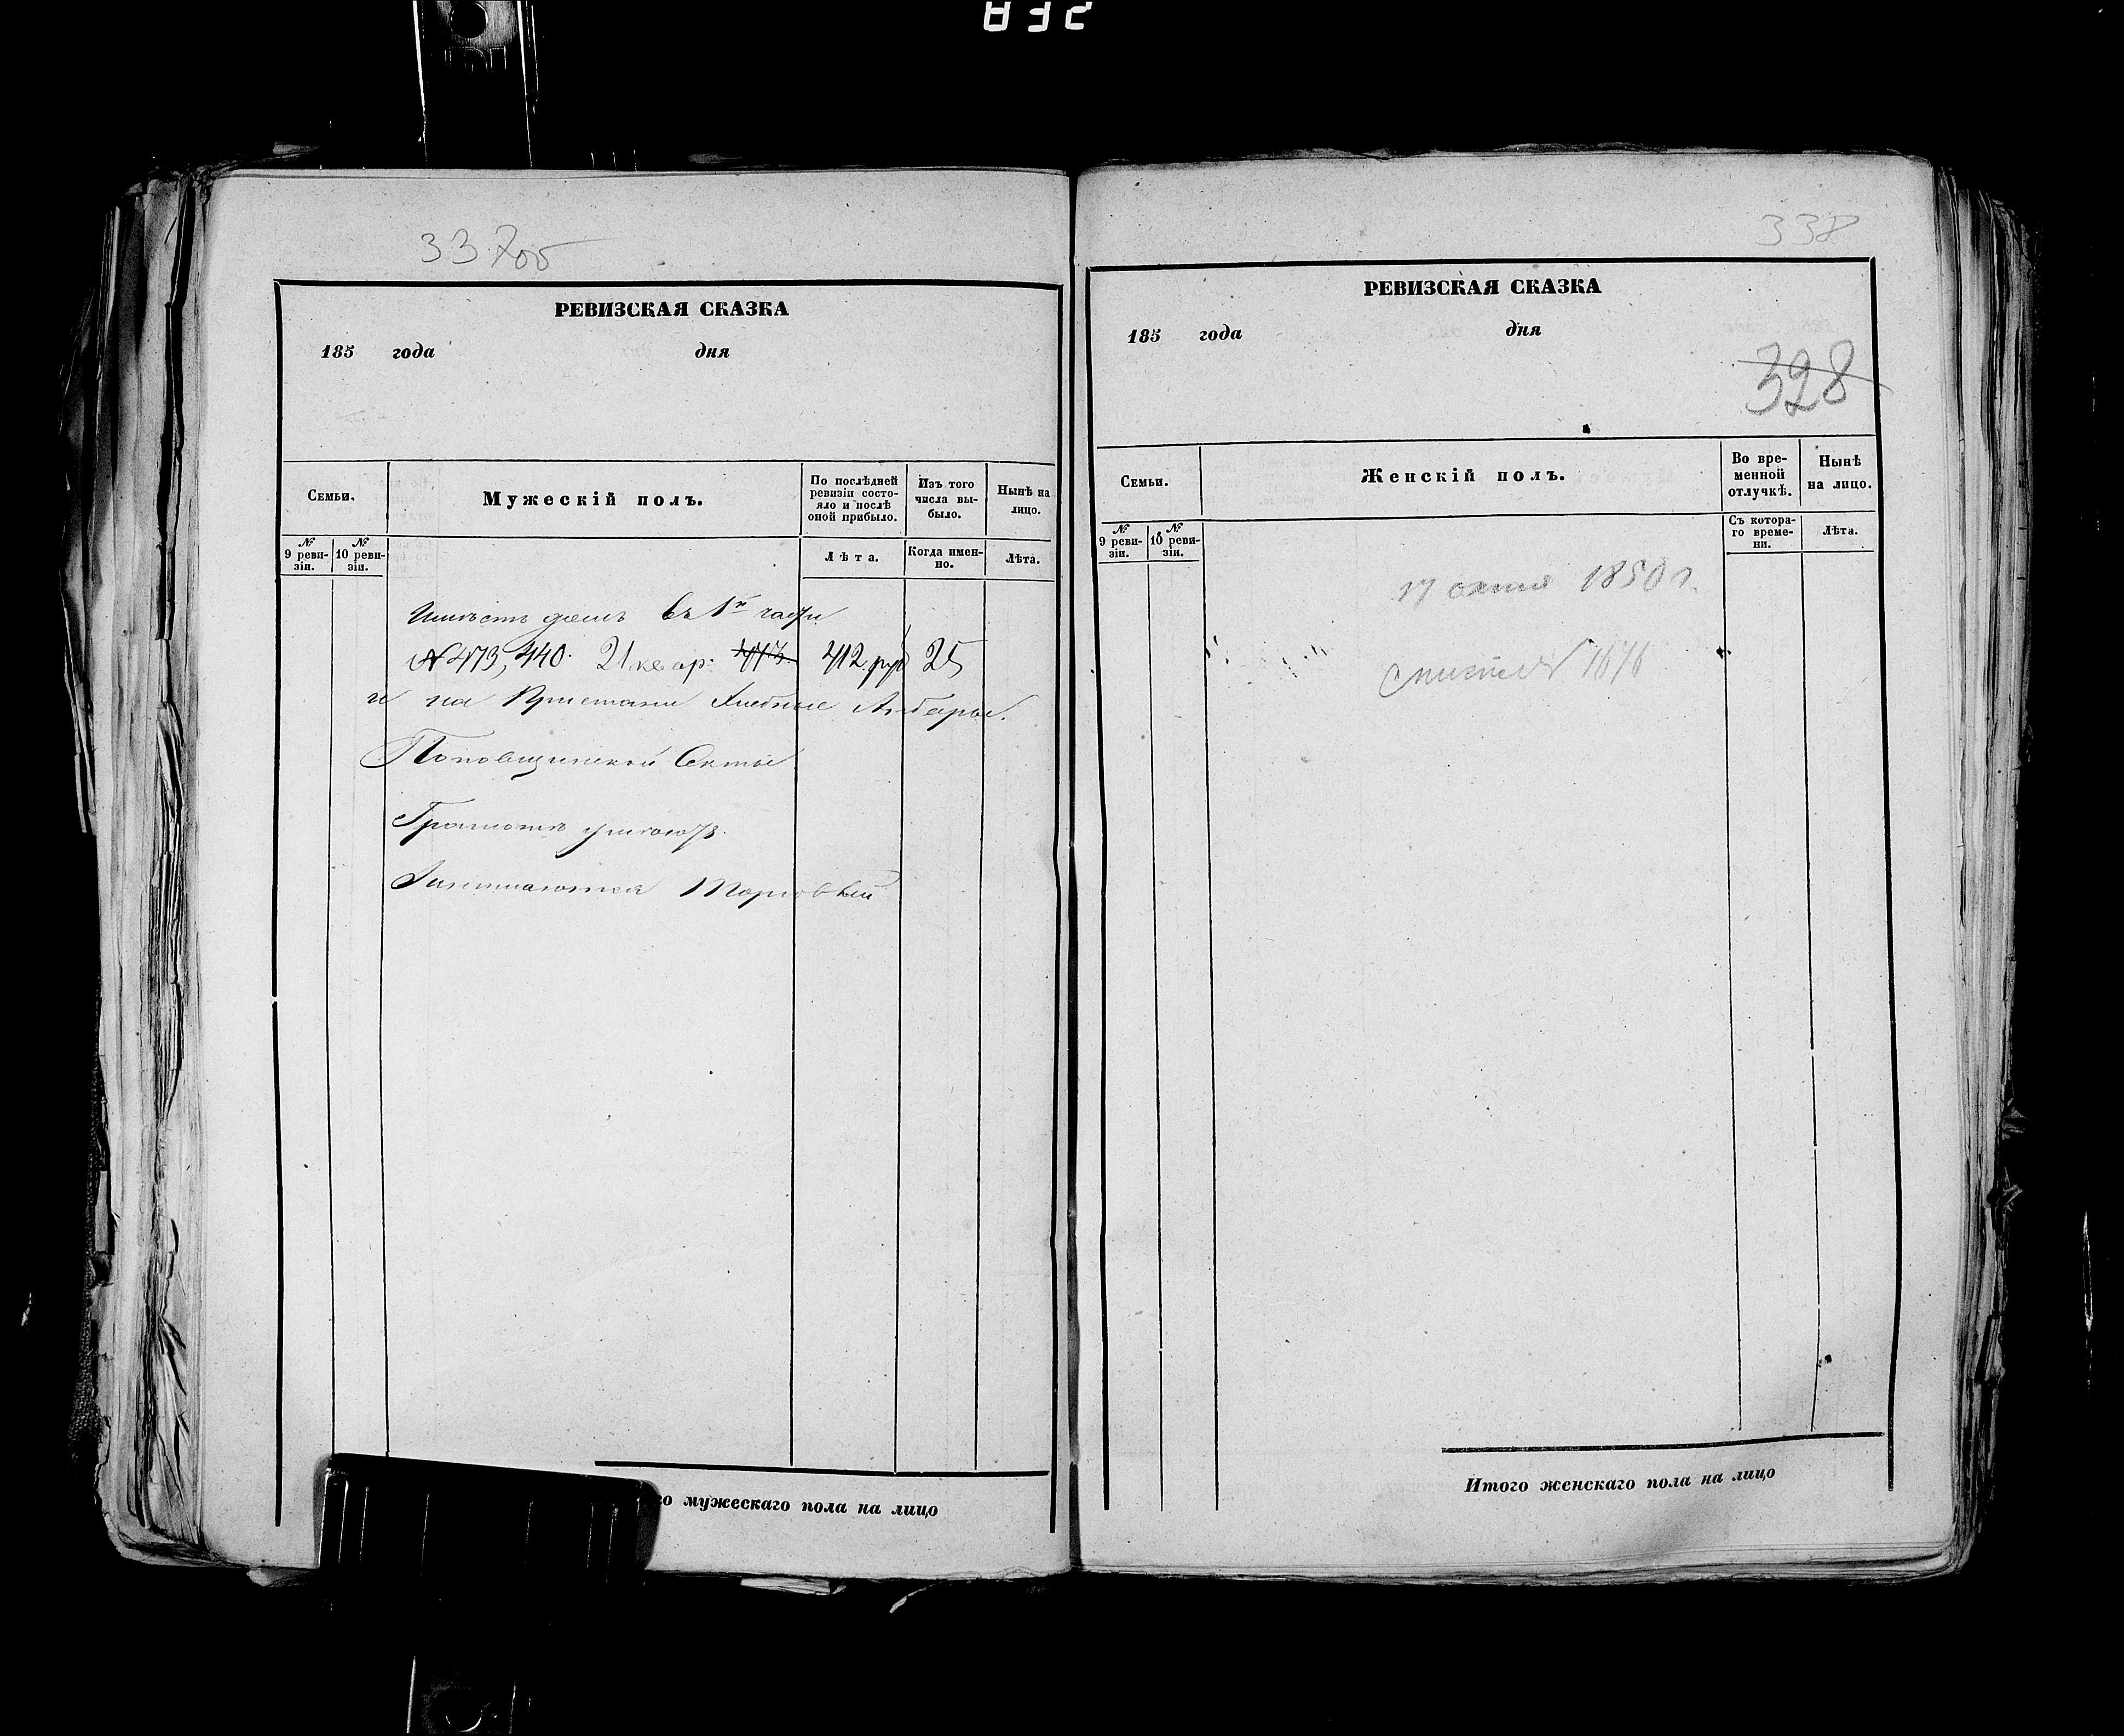 832
337об
РЕВИЗСКАЯ СКАЗКА
185 года дня
Семьи.
Мужескій полъ.
По послѣдней ревизіи состояло и послѣ оной прибыло.
Изъ того числа выбыло.
Нынѣ на лицо.
№ 9 ревизіи.
№ 10 ревизіи.
Лѣта.
Когда именно.
Лѣта.
Имѣетъ домъ въ 1й части
№ 473, 440. 21 квар: 412 руб 25
и на Пристани Хлебные Анбары.
Поповщинской Секты
Грамотѣ умѣютъ.
Занимаются Торговлей
го мужескаго пола на лицо
338
РЕВИЗСКАЯ СКАЗКА
185 года дня
328
Семьи.
Женскій полъ.
Во временной отлучкѣ.
Нынѣ на лицо.
№ 9 ревизіи.
№ 10 ревизіи.
Съ котораго времени.
Лѣта.
17 1850 г.
1676
Итого женскаго пола на лицо